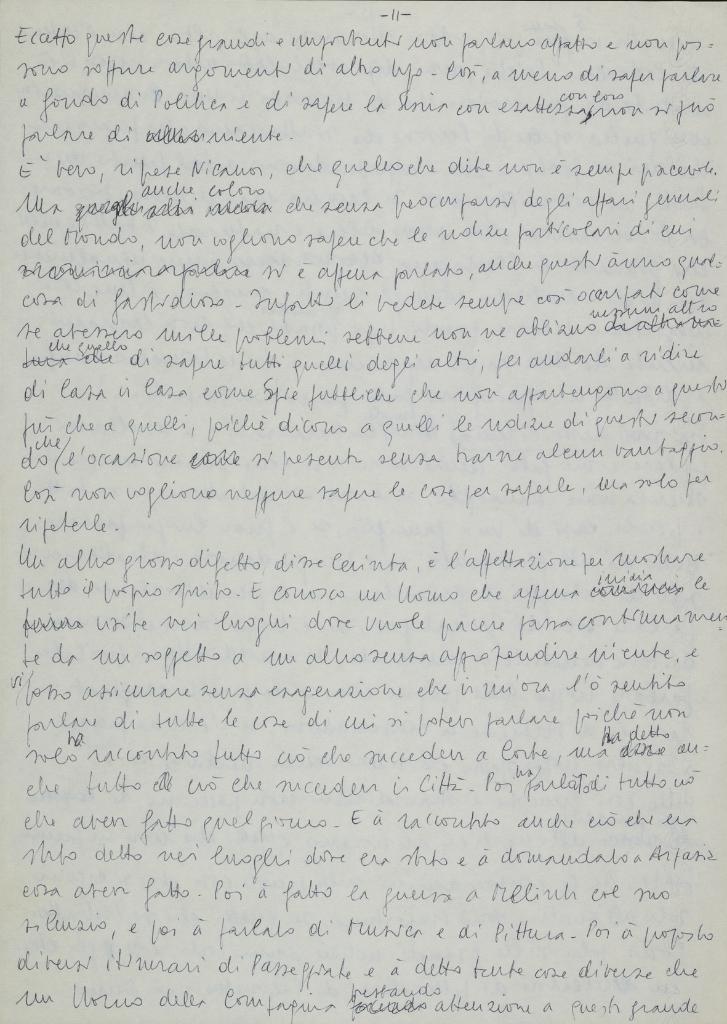 -11-
Eccetto queste cose grandi e importanti non parlano affatto e non pos=
sono soffrire argomenti di altro tipo - Così, a meno di saper parlare
a fondo di Politica e di sapere la Storia con esattezza, con loro non si può
parlare di niente.
E' vero, ripese Nicanor, che quello che dite non è sempre piacevole.
Ma anche coloro che senza preoccuparsi degli affari generali
del Mondo, non vogliono sapere che le notizie particolari di cui
si è appena parlato, anche questi ànno qual=
cosa di fastidioso - Infatti li vedete sempre così occupati come
se avessero mille problemi sebbene non ne abbiano nessun altro
che quello di sapere tutti quelli degli altri, per andarli a ridire
di Casa in Casa come Spie pubbliche che non appartengono a questi
più che a quelli, poichè dicono a quelli le notizie di questi secon=
do che l'occasione si presenti senza trarne alcun vantaggio.
Così non vogliono neppure sapere le cose per saperle, ma solo per
ripeterle.
Un altro grosso difetto, disse Cerinta, è l'affettazione per mostrare
tutto il proprio spirito. E conosco un Uomo che appena inizia le
visite nei luoghi dove vuole piacere passa continuamen=
te da un soggetto a un altro senza approfondire niente, e
vi posso assicurare senza esagerazione che in un'ora l'ò sentito
parlare di tutte le cose di cui si poteva parlare poichè non
solo ha raccontato tutto ciò che succedeva a Corte, ma ha detto an=
che tutto ciò che succedeva in Città - Poi ha parlato di tutto ciò
che aveva fatto quel giorno - E à raccontato anche ciò che era
stato detto nei luoghi dove era stato e à domandato a Arpasia
cosa aveva fatto - Poi à fatto la guerra a Melinte col suo
silenzio, e poi à parlato di Musica e di Pittura - Poi à proposto
diversi itinerari di Passeggiate e à detto tante cose diverse che
un Uomo della Compagnia prestando attenzione a questa grande